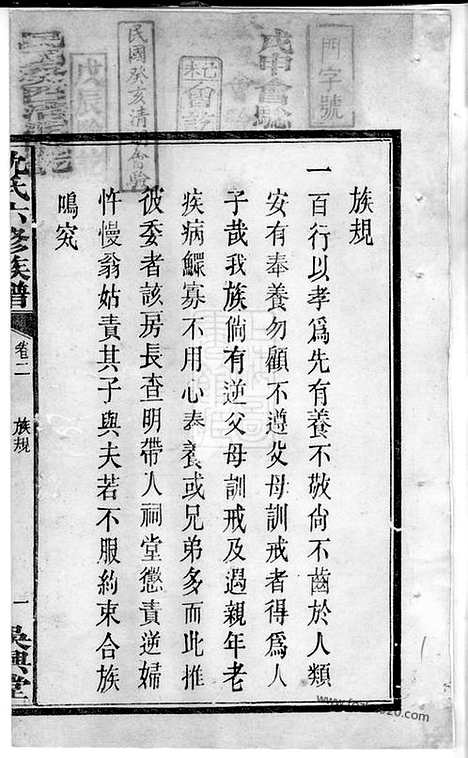 族規
一百行以孝爲先有養不敬尙不齒於人類
安有奉養勿顧不遵父母訓戒者得爲人
子哉我族倘有逆父母訓戒及遇親年老
疾病鰥寡不用心奉養或兄弟多而此推
彼委者該房長查明帶人祠堂懲責逆婦
忤慢翁姑責其子與夫若不服約束合族
鳴究
沈氏六修族譜
卷二
族規
一
吳興堂
門字號
戊申會驗
民國癸亥清明會驗